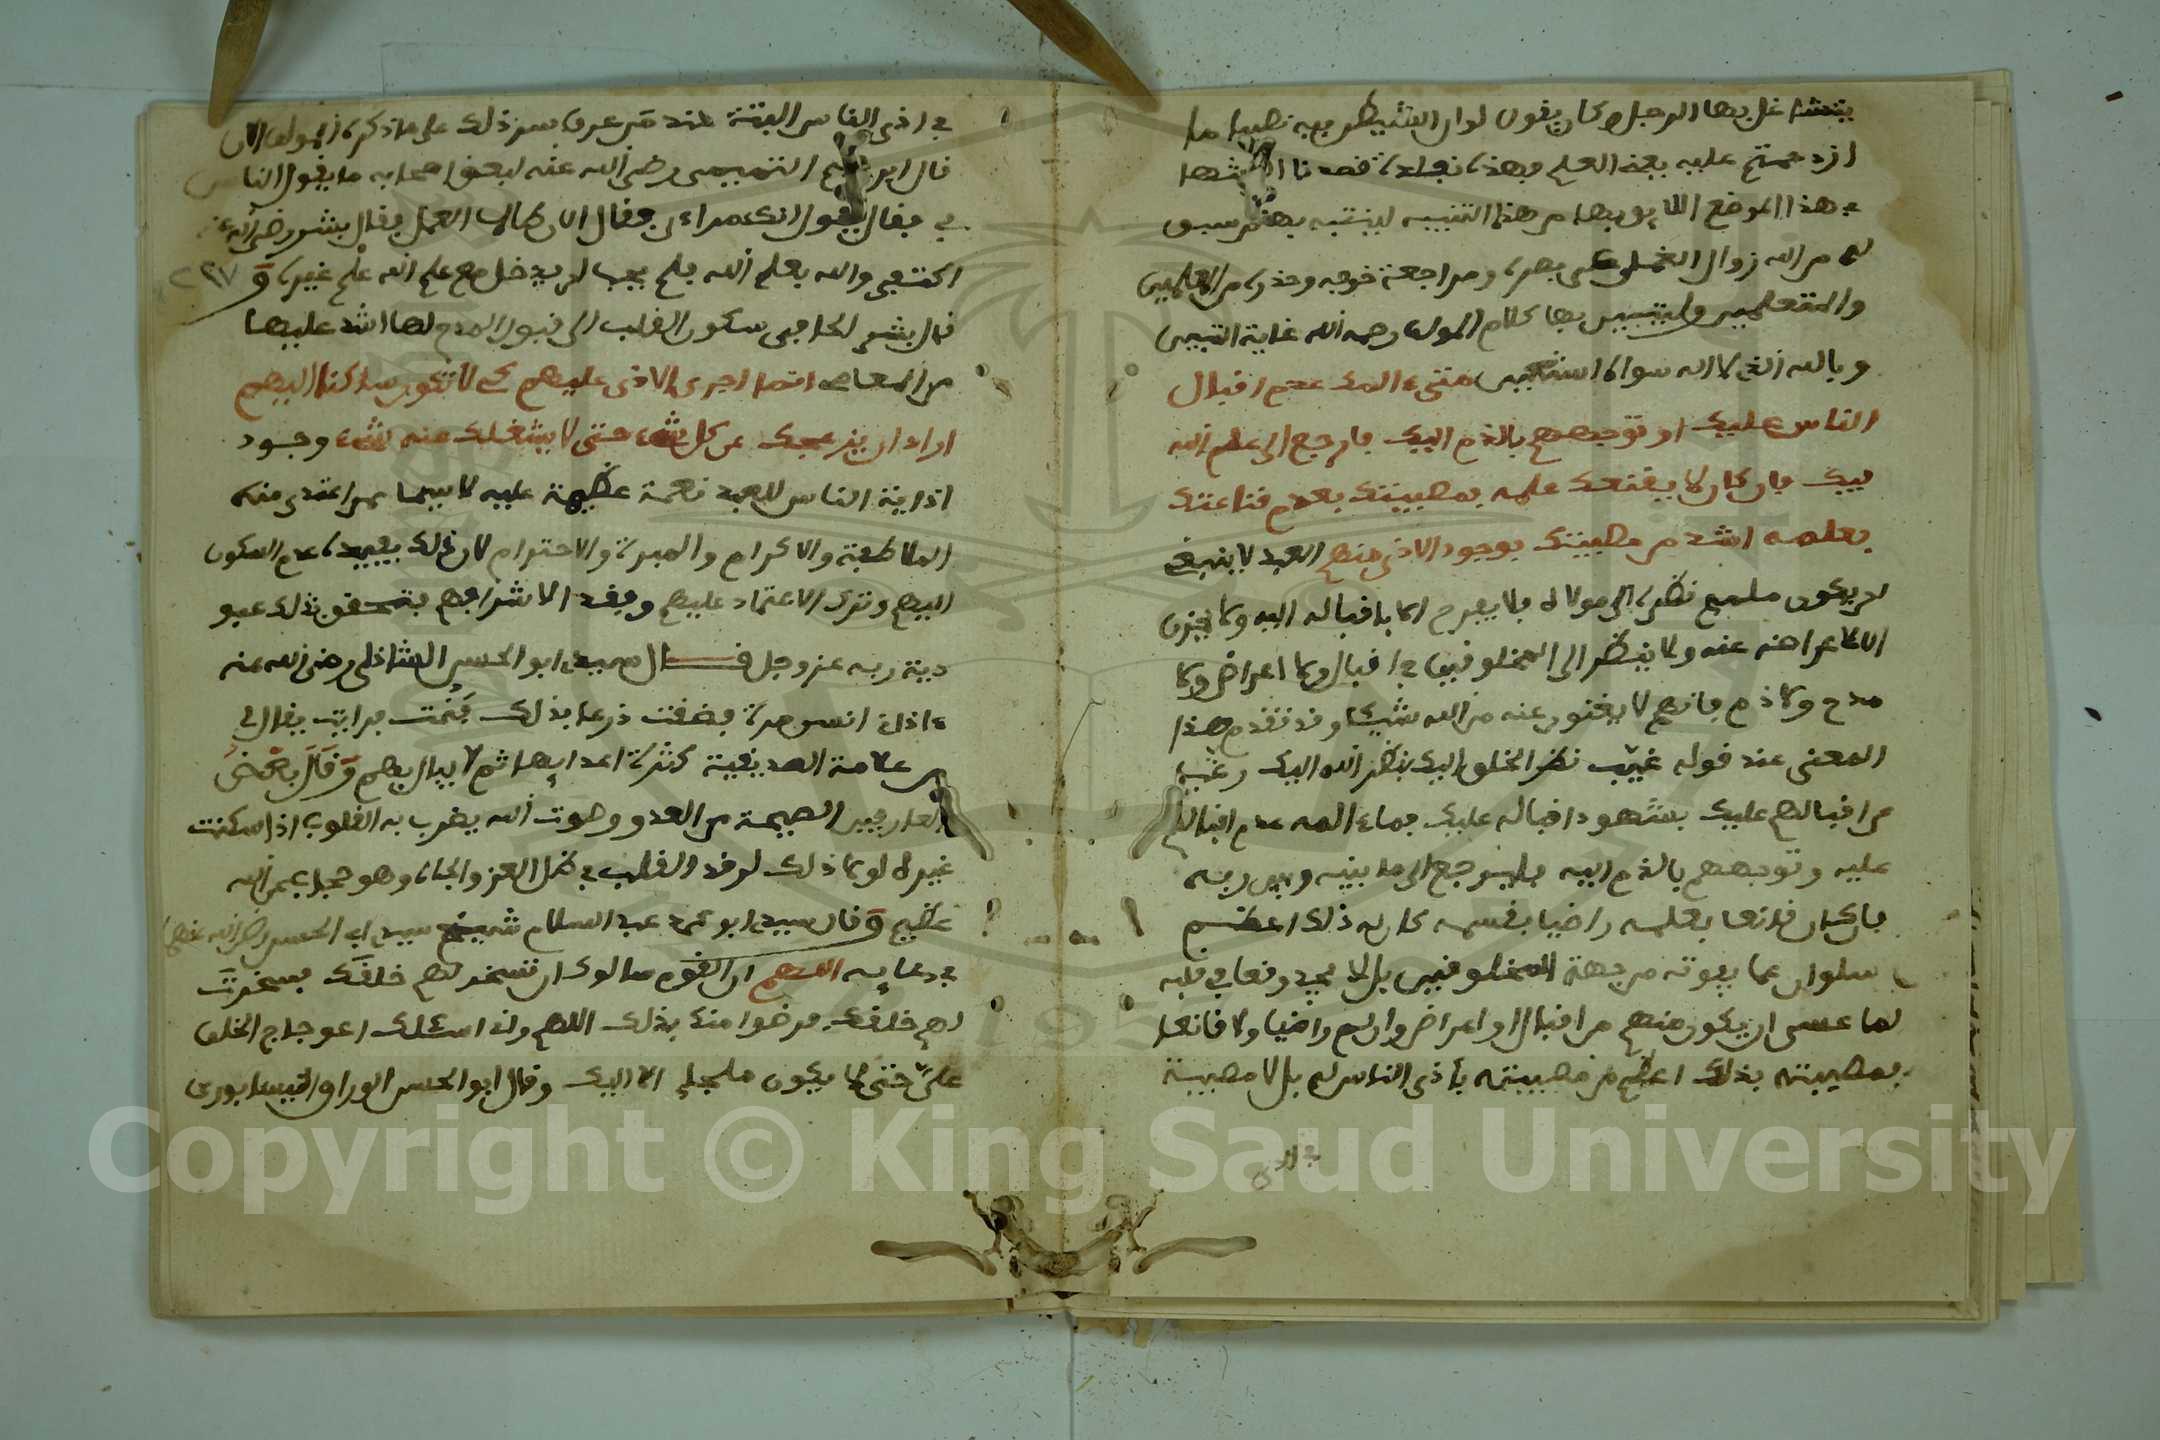 يتشاغل بها الرجل وكان يقول لولا ان للشيطان فيه نصيبا ما
ازدحمتم عليه يعنى العلم وبهذه نجارة قصدنا اثباتها
في هذا الموضع اللايق بها من هذا التنبيه لينتبه بها من سبق
له من الله زوال الغطا عن بصره ومراجعة خوفه وحذره من العالمين
والمتعلمين وليتبين بها كلام المولف رحمه الله غاية التبيين
وبالله الذي لا اله سواه استعين متى ءالمك عدم اقبال
الناس عليك او توجههم بالذم اليك فارجع الى علم الله
فيك فان كان لا يقنعك علمه فمصيبتك بعدم قناعتك
بعلمه اشد من مصيبتك بوجود الاذى منهم العبد لا ينبغي
ان يكون مطمح نظره الى مولاه فلا يفرح الا باقباله اليه ولا يحزن
الا لاعراضه عنه ولا ينظر الى المخلوقين في اقبال ولا اعراض ولا
مدح ولا ذم فانهم لا يغنون عنه من الله شيئا وقد تقدم هذا
المعنى عند قوله غيّب نظر الخلق اليك بنظر الله اليك وغب
عن اقبالهم عليك بشهود اقباله عليك فماء المه عدم اقبالهم
عليه وتوجههم بالذم اليه فليرجع الى ما بينه وبين ربه
فان كان قانعا بعلمه راضيا بقسمه كان له ذلك اعظم
سلوان عما يفوته من جهة المخلوقين بل لا يجد وقعا في قلبه
لما عسى ان يكون منهم من اقبال او اعراض وان لم راضيا ولا قانعا
فمصيبته بذلك اعظم من مصيبته باذى الناس له بل لا مصيبة
في اذى
في اذى الناس البتة عند من عرف سر ذلك على ما ذكره المولف الان
قال ابرهيم التيمى رضى الله عنه لبعض اصحابه ما يقول الناس
في فقال يقول انك مراءى فقال الان طاب العمل فقال بشر رضى الله عنه
اكتفى والله بعلم الله فلم يجب ان يدخل مع علم الله علم غيره وَ
٢٣٧
قال بشر الحافى سكون القلب الى قبول المدح لها اشد عليها
من المعاصى انما اجرى الاذى عليهم كى لا تكون ساكنا اليهم
اراد ان يزعجك عن كل شىء حتى لا يشغلك عنه شىء وجود
اذاية الناس للعبد نعمة عظيمة عليه لا سيما ممن اعتدى منه
الملاطفة والاكرام والمبرة والاحترام لان ذلك يفيده عدم السكون
اليهم وترك الاعتماد عليهم وفقد الانس بهم فتحقق بذلك عبو
دية ربه عز وجل قال سيدى ابو الحسن الشاذلى رضى الله عنه
ءاذانى انسان مرة فضقت ذرعا بذلك فنمت فرايت يقال لى
من علامة الصديقية كثرة اعدايها ثم لا يبالى بهم وَقَالَ بعْضُ
العارفين الصيحة من العدو وصوت الله يضرب به القلوب اذا سكنت
غيره لولا ذلك لرقد القلب في ظل العز والجاه وهو حجاب عن الله
عظيم وَقال سيدى ابو محمد عبد السلام شيخ سيدى ابى الحسن رضى الله عنهما
في دعايه اللهم ان القوم سالوك ان تسخر لهم خلقك فسخرت
لهم خلقك فرضوا منك بذلك اللهم وانى اسئلك اعوجاج الخلق
علىَّ حتى لا يكون ملجئى الا اليك وقال ابو الحسن الوراق النيسابورى
Copyright © King Saud University